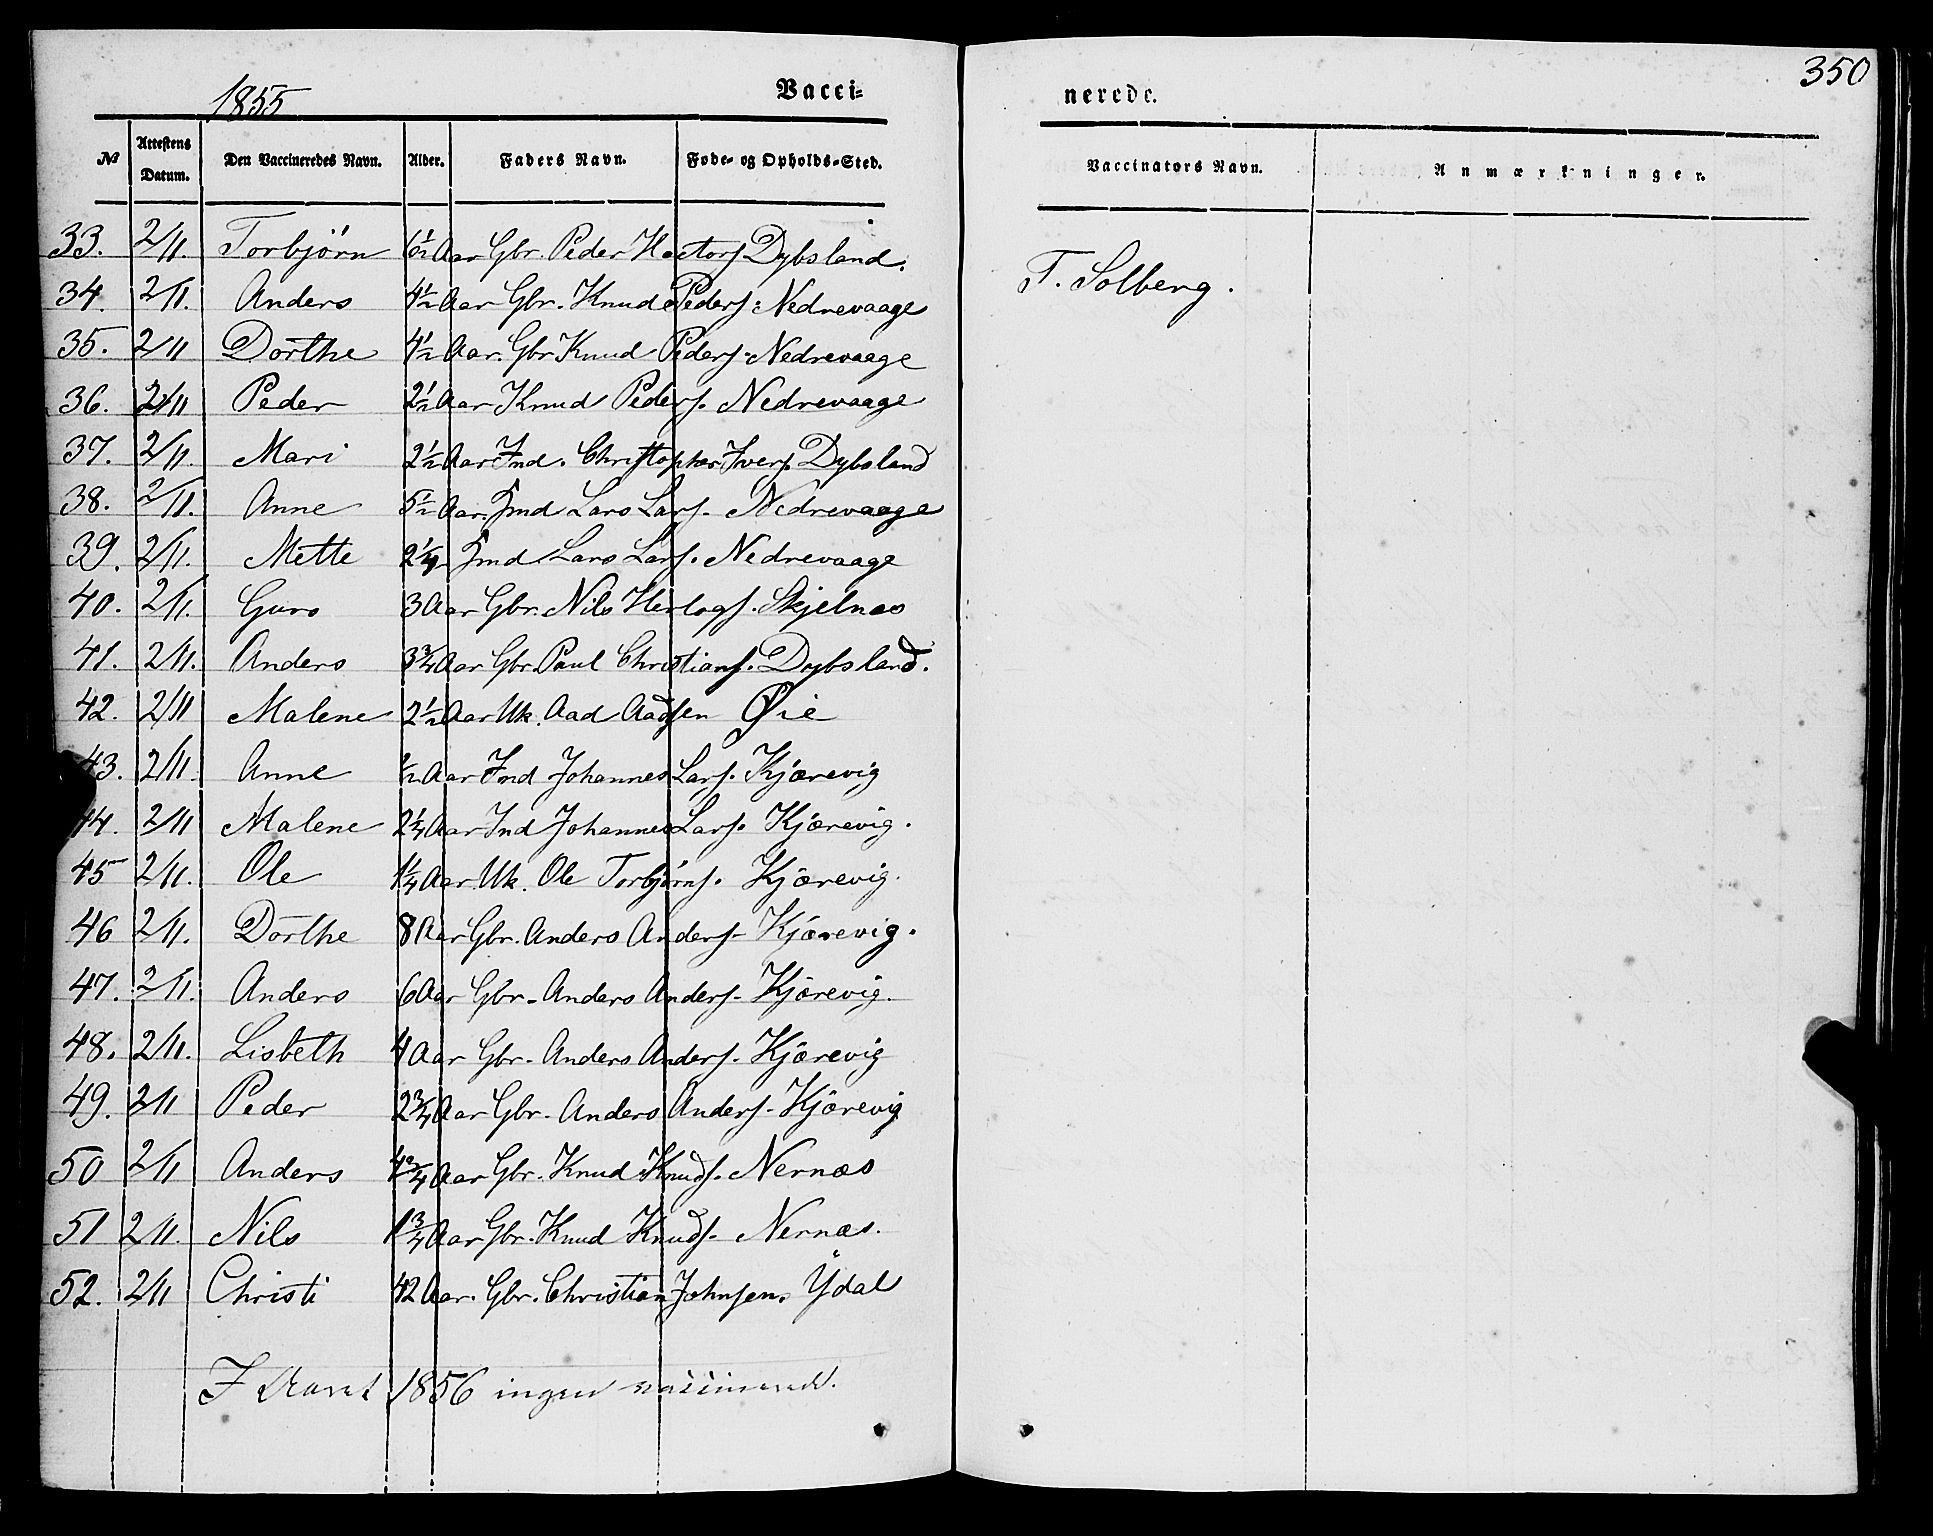 350
1855
Vacci-
nerede.
№ Attestens Datum. Den Vaccineredes Navn. Alder. Faders Navn. Føde- og Opholds-Sted.
Vaccinators Navn. Anmærkninger.
33. 2/11. Torbjörn 6½ Aar Gbr. Peder Hectors. Dybsland.
T. Solberg.
34. 2/11. Anders 4½ Aar Gbr. Knud Peders: Nedrevaage
35. 2/11 Dorthe 4½ Aar. Gbr Knud Peders: Nedrevaage
36. 2/11 Peder 2½ Aar Knud Peders. Nedrevaage
37. 2/11. Mari 2½ Aar Ind. Christopher Ivers. Dybsland
38. 2/11. Anne 5½ Aar. Ind Lars Lars. Nedrevaage
39. 2/11. Mette 2¼ Ind Lars Lars. Nedrevaage
40. 2/11. Guro 3 Aar Gbr. Nils Herlogs. Skjelnæs
41. 2/11. Anders 3¾ Aar Gbr. Paul Christians. Dybsland.
42. 2/11 Malene 2½ Aar Uk. Aad Aadsen Øie
43. 2/11. Anne ½ Aar Ind Johannes Lars. Kjærevig
44. 2/11 Malene 2¼ Aar Ind Johannes Lars. Kjærevig.
45 2/11. Ole 1¼ Aar. Uk. Ole Torbjörns. Kjærevig.
46 2/11. Dorthe 8 Aar Gbr. Anders Anders- Kjærevig.
47. 2/11. Anders 6 Aar Gbr- Anders Anders- Kjærevig.
48. 2/11. Lisbeth 4 Aar Gbr- Anders Anders. Kjærevig
49. 2/11 Peder 2¾ Aar Gbr- Anders Anders- Kjærevig
50 2/11 Anders 4¾ Aar Gbr. Knud Knuds. Nernæs
51 2/11. Nils 1¾ Aar Gbr. Knud Knuds. Nernæs.
52. 2/11 Christi 42 Aar. Gbr. Christian Johnsen. Ydal
I Aaret 1856 ingen vaccinerede.